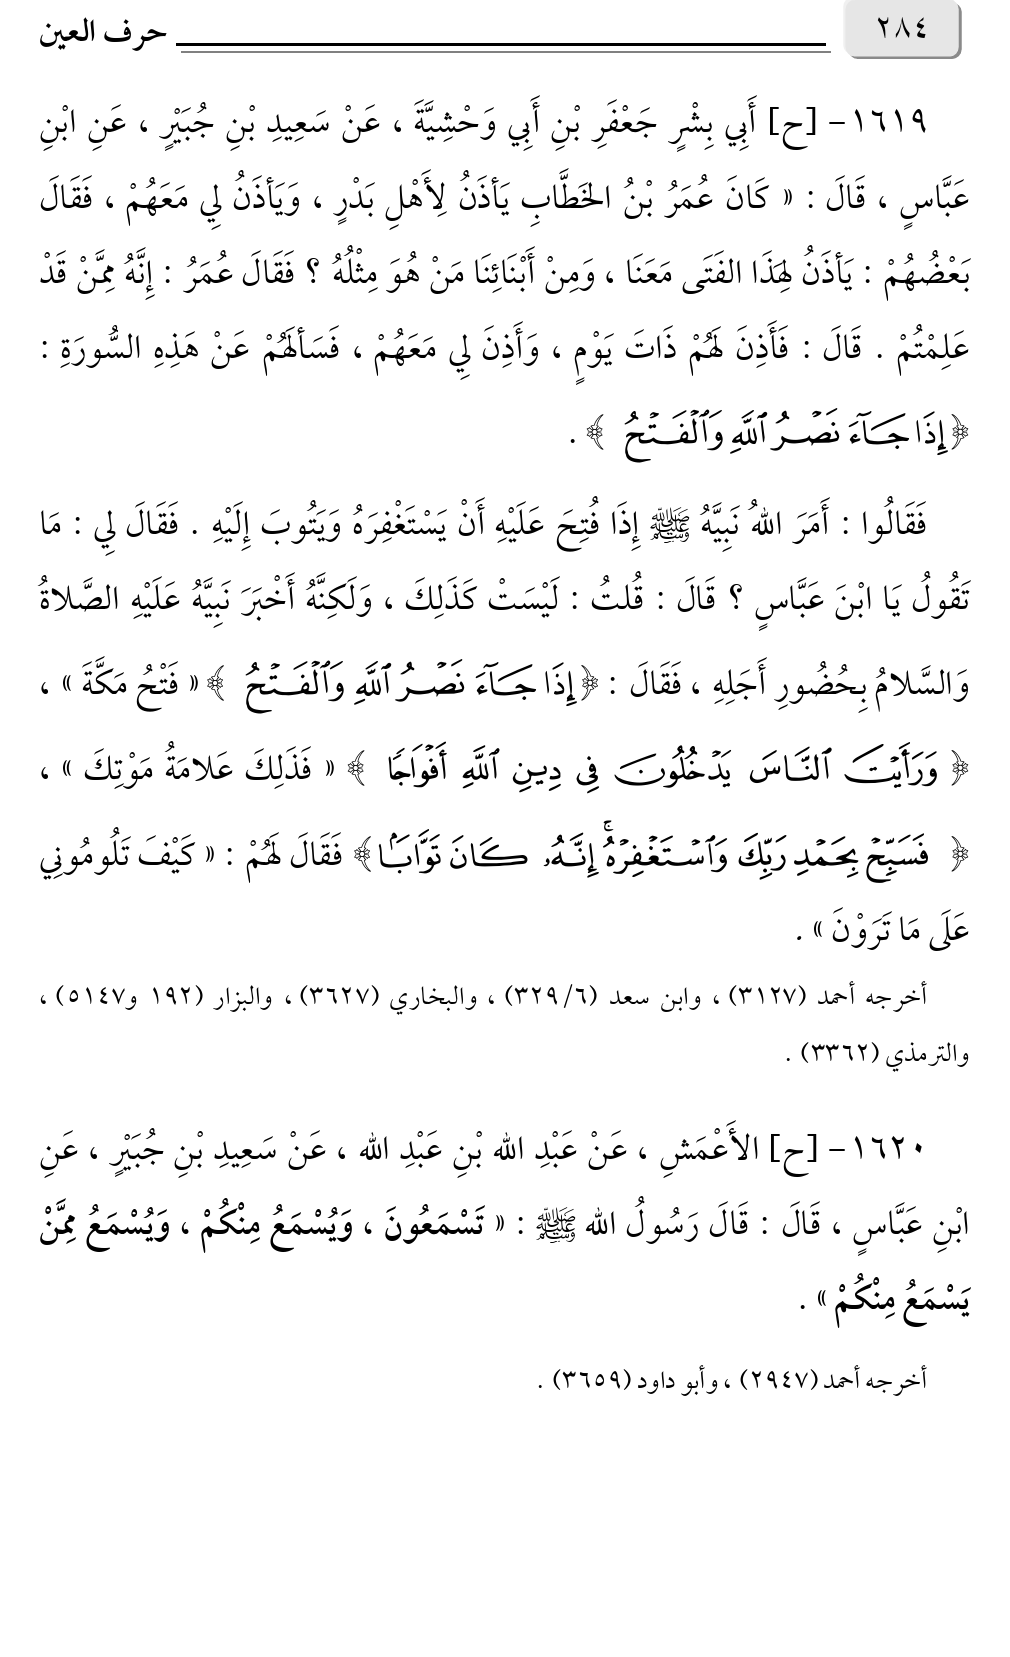 ٢٨٤
حرف العين
١٦١٩- [ح] أَبِي بِشْرٍ جَعْفَرِ بْنِ أَبِي وَحْشِيَّةَ ، عَنْ سَعِيدِ بْنِ جُبَيْرٍ ، عَنِ ابْنِ
عَبَّاسٍ ، قَالَ : « كَانَ عُمَرُ بْنُ الخَطَّابِ يَأذَنُ لِأَهْلِ بَدْرٍ ، وَيَأذَنُ لِي مَعَهُمْ ، فَقَالَ
بَعْضُهُمْ : يَأذَنُ لِهَذَا الفَتَى مَعَنَا ، وَمِنْ أَبْنَائِنَا مَنْ هُوَ مِثْلُهُ ؟ فَقَالَ عُمَرُ : إِنَّهُ مِمَّنْ قَدْ
عَلِمْتُمْ . قَالَ : فَأَذِنَ لَهُمْ ذَاتَ يَوْمٍ ، وَأَذِنَ لِي مَعَهُمْ ، فَسَألَهُمْ عَنْ هَذِهِ السُّورَةِ :
﴿إِذَا جَآءَ نَصْرُ ٱللَّهِ وَٱلْفَتْحُ ﴾ .
فَقَالُوا : أَمَرَ اللهُ نَبِيَّهُ ﷺ إِذَا فُتِحَ عَلَيْهِ أَنْ يَسْتَغْفِرَهُ وَيَتُوبَ إِلَيْهِ . فَقَالَ لِي : مَا
تَقُولُ يَا ابْنَ عَبَّاسٍ ؟ قَالَ : قُلتُ : لَيْسَتْ كَذَلِكَ ، وَلَكِنَّهُ أَخْبَرَ نَبِيَّهُ عَلَيْهِ الصَّلاةُ
وَالسَّلامُ بِحُضُورِ أَجَلِهِ ، فَقَالَ : ﴿إِذَا جَآءَ نَصْرُ ٱللَّهِ وَٱلْفَتْحُ ﴾ « فَتْحُ مَكَّةَ » ،
﴿ وَرَأَيْتَ ٱلنَّاسَ يَدْخُلُونَ فِى دِينِ ٱللَّهِ أَفْوَاجًا ﴾ « فَذَلِكَ عَلامَةُ مَوْتِكَ » ،
﴿ فَسَبِّحْ بِحَمْدِ رَبِّكَ وَٱسْتَغْفِرْهُ ۚ إِنَّهُۥ كَانَ تَوَّابًۢا ﴾ فَقَالَ لَهُمْ : « كَيْفَ تَلُومُونِي
عَلَى مَا تَرَوْنَ » .
أخرجه أحمد (٣١٢٧) ، وابن سعد (٣٢٩/٦) ، والبخاري (٣٦٢٧) ، والبزار (١٩٢ و٥١٤٧) ،
والترمذي (٣٣٦٢) .
١٦٢٠- [ح] الأَعْمَشِ ، عَنْ عَبْدِ الله بْنِ عَبْدِ الله ، عَنْ سَعِيدِ بْنِ جُبَيْرٍ ، عَنِ
ابْنِ عَبَّاسٍ ، قَالَ : قَالَ رَسُولُ الله ﷺ : « تَسْمَعُونَ ، وَيُسْمَعُ مِنْكُمْ ، وَيُسْمَعُ مِمَّنْ
يَسْمَعُ مِنْكُمْ » .
أخرجه أحمد (٢٩٤٧) ، وأبو داود (٣٦٥٩) .